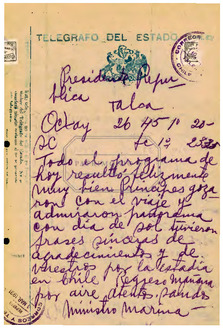 TELEGRAFO DEL ESTADO
Presidente Repu-
blica
Talca
Octay 26 45 1° 20-
SC
Todo el programa de
hoy resultó felizmente
muy bien Principes goza
ron con el viaje y
admiraron panorama
con dia de sol tuvieron
frases sinceras de
agradecimientos y de
por la estadia
en Chile Regreso mañana
por aire Atentos saludos
Ministro Marina